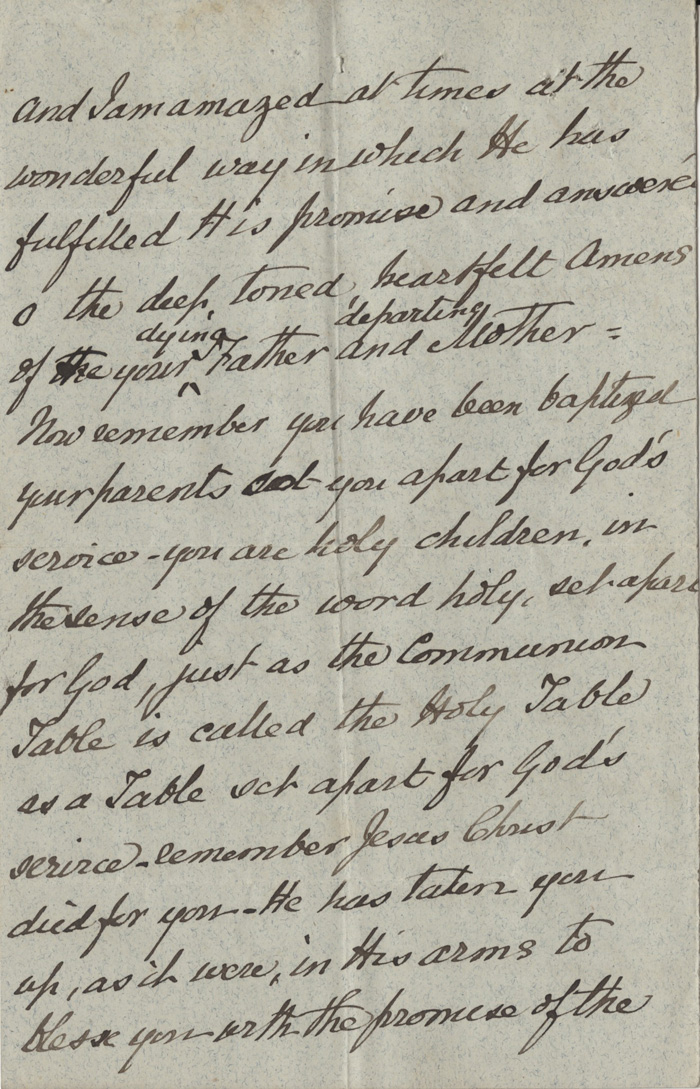 and I am amazed at times at the
wonderful way in which He has
fulfilled His promise and answere
o the deep, toned, heartfelt Amens
dying departing
of the your Father and Mother =
Now remember you have been baptized
your parents set you apart for God's
service - you are holy children, in
the sense of the word holy, set apart
for God, just as the Communion
Table is called the Holy Table
as a Table set apart for God's
serirce - remember Jesus Christ
died for you - He has taken you
up, as it were, in His arms to
bless you with the promise of the